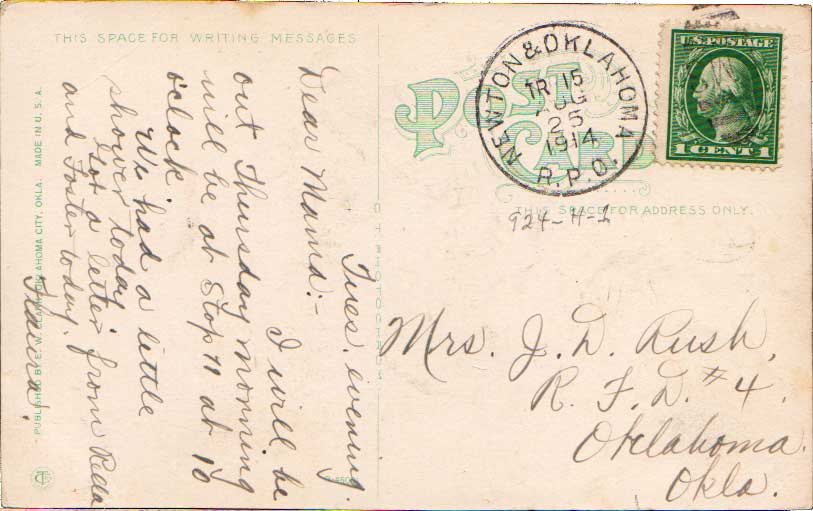 THIS SPACE FOR WRITING MESSAGES
Tues. evening.
Dear Mama:-
I will be
out Thursday morning
will be at Stop 11 at 10
o'clock.
We had a little
shower today.
Got a letter from Reda
and Foster today.
PUBLISHED BY E. W. CLARK, OKLAHOMA CITY, OKLA. MADE IN U. S. A.
POST CARD
NEWTON & OKLAHOMA
TR 15
AUG
25
1914
R.P.O.
U.S. POSTAGE
1 CENT 1
THIS SPACE FOR ADDRESS ONLY.
924-H-1
Mrs. J. D. Rush,
R. F. D. #4.
Oklahoma.
Okla.